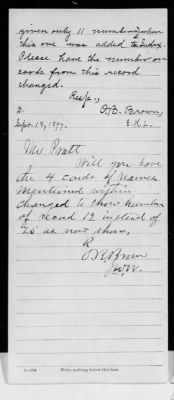 given only 11 numbering when
this one was added to Index.
Please have the number on
cards from this record
changed.
Resp.,
2. O.B. Brown,
Sept. 18, 1897. E.K.L.
Mr Pratt
Will you have
the 4 cards of names
mentioned within
changed to show number
of record 12 instead of
28 as now shown.
R
O.B. Brown
Write nothing below this line.